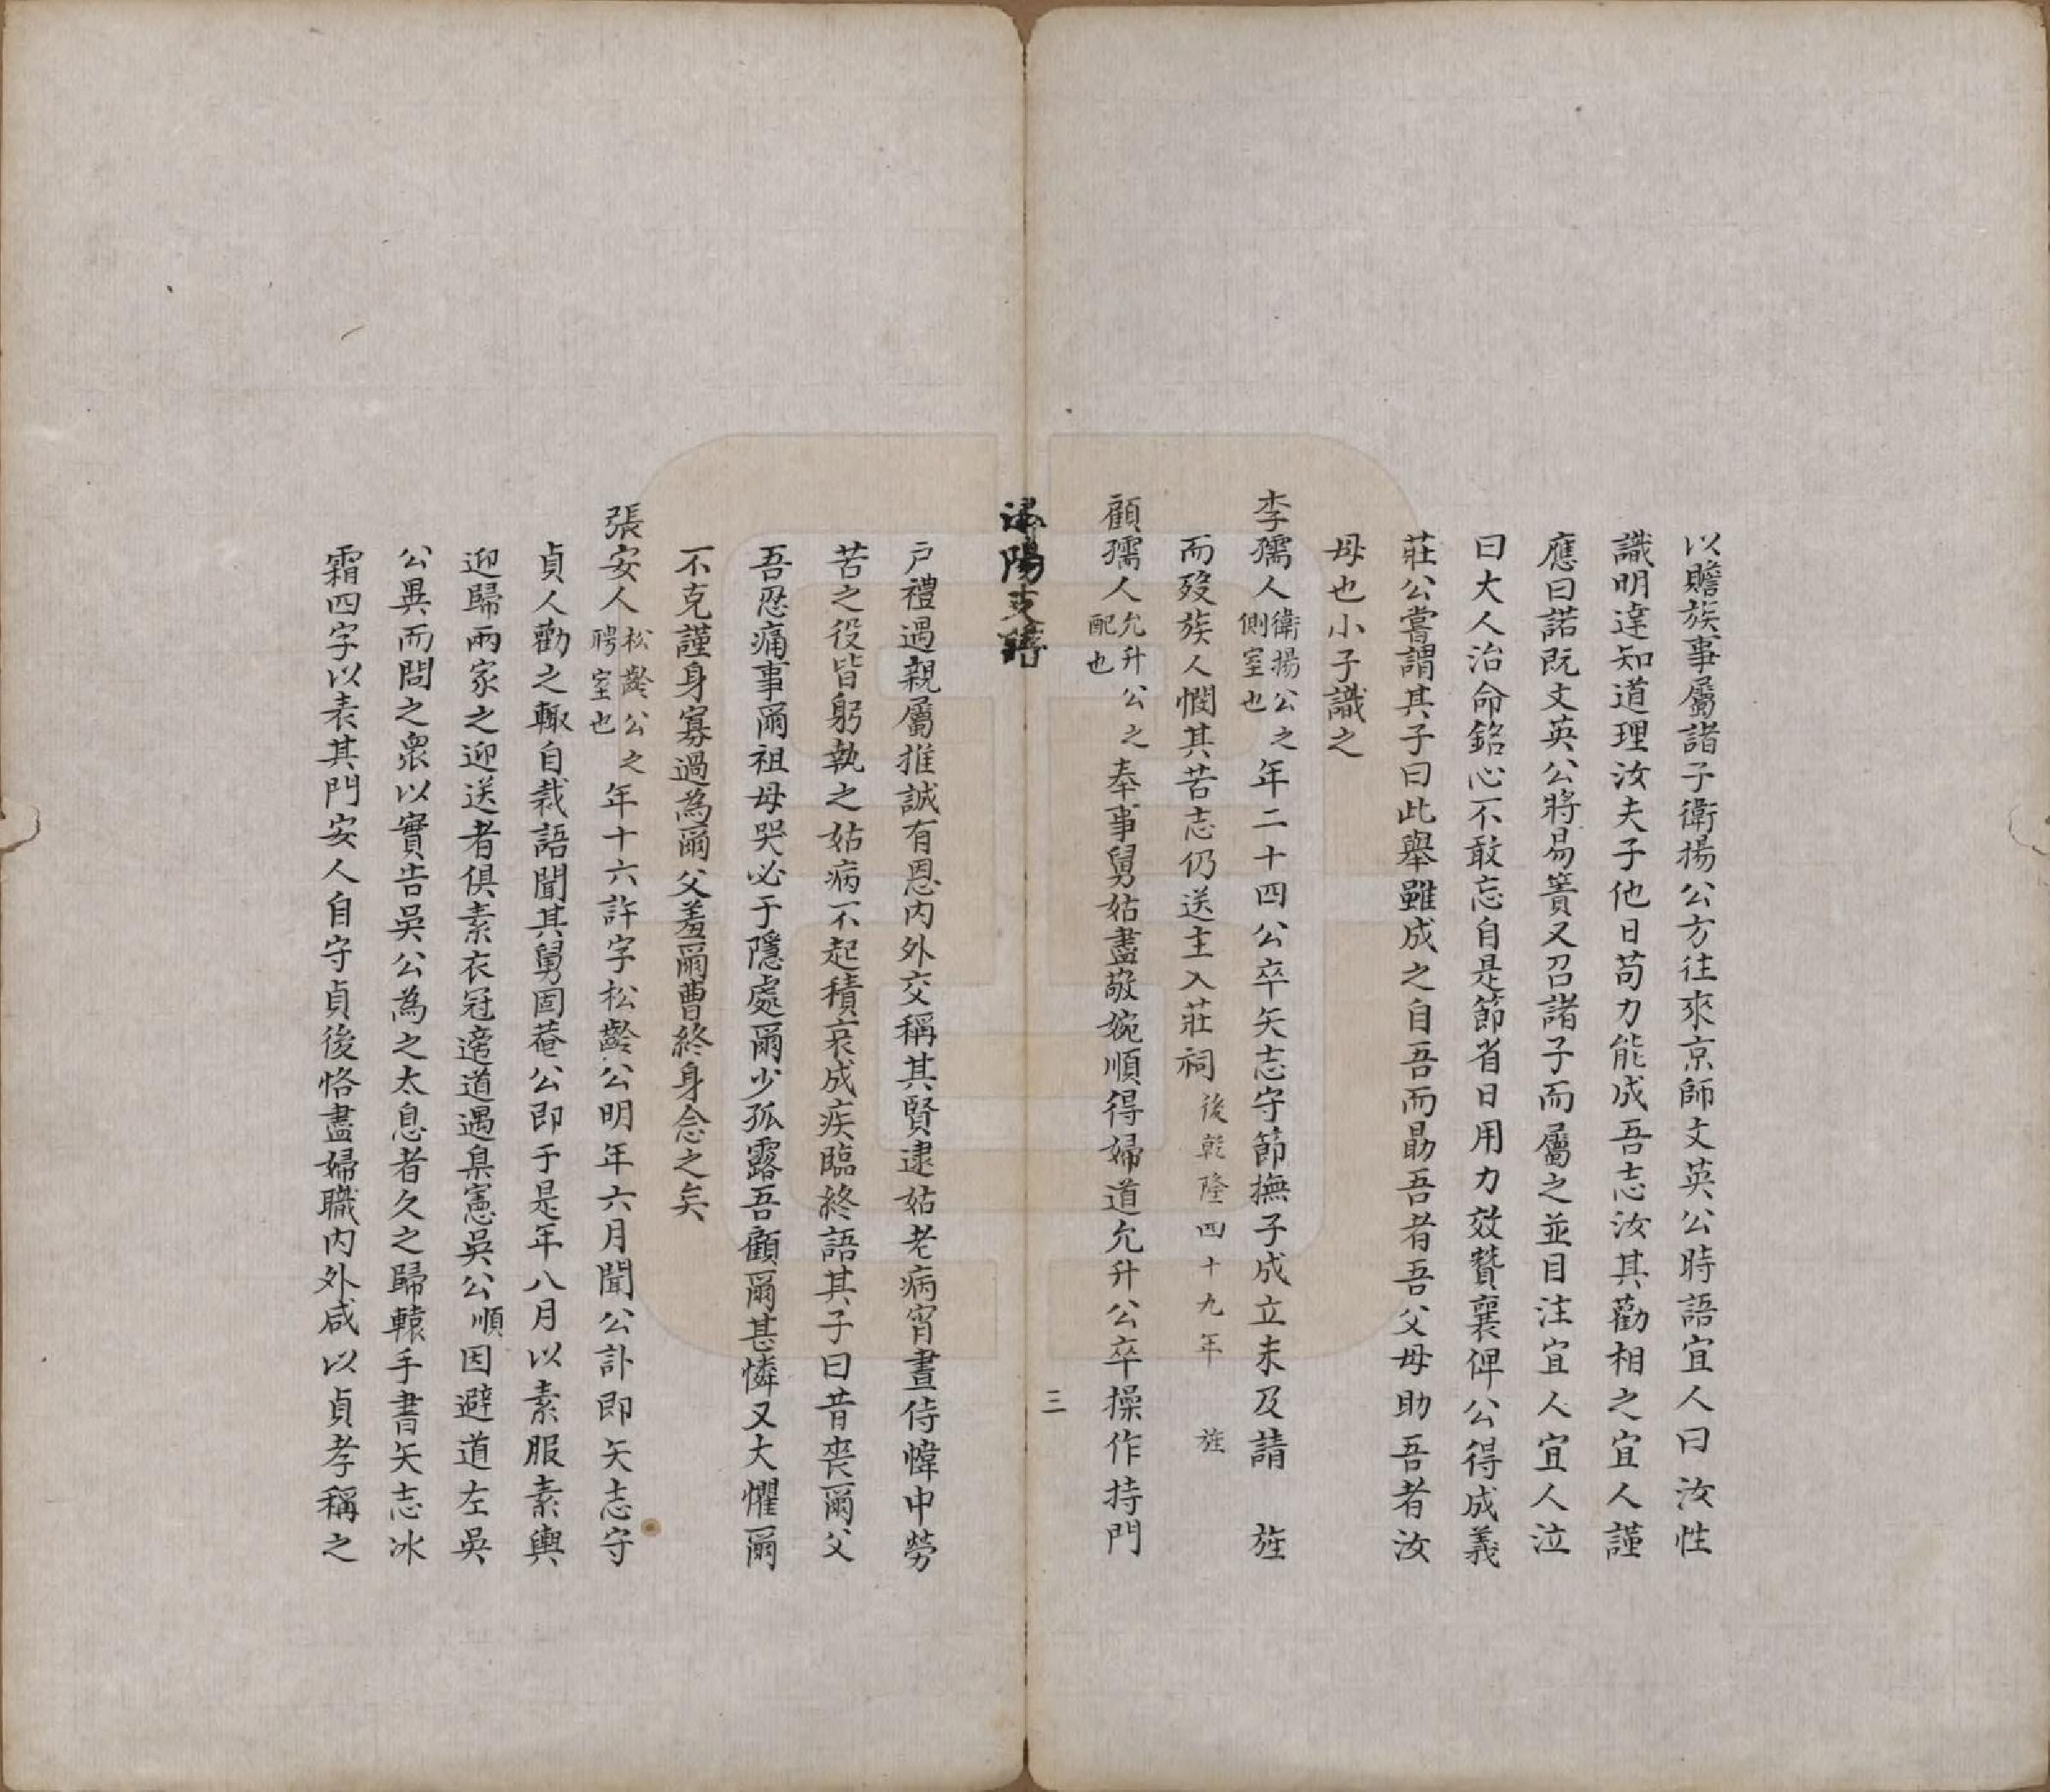 以贍族事屬諸子衛揚公方往來京師文英公時語宜人曰汝性
識明達知道理汝夫子他日苟力能成吾志汝其勸相之宜人謹
應曰諾既文英公將易簀又召諸子而屬之並目注宜人宜人泣
曰大人治命銘心不敢忘自是節省日用力效贊襄俾公得成義
莊公嘗謂其子曰此舉雖成之自吾而勗吾者吾父母助吾者汝
母也小子識之
李孺人衛揚公之側室也年二十四公卒矢志守節撫子成立未及請 旌
而歿族人憫其苦志仍送主入莊祠後乾隆四十九年 旌
顧孺人允升公之配也奉事舅姑盡敬婉順得婦道允升公卒操作持門
陽支譜
三
戶禮遇親屬推誠有恩內外交稱其賢逮姑老病宵晝侍幃中勞
苦之役皆躬執之姑病不起積哀成疾臨終語其子曰昔喪爾父
吾忍痛事爾祖母哭必于隱處爾少孤露吾顧爾甚憐又大懼爾
不克謹身寡過為爾父羞爾曹終身念之矣
張安人松齡公之聘室也年十六許字松齡公明年六月聞公訃即矢志守
貞人勸之輒自裁語聞其舅固菴公即于是年八月以素服素輿
迎歸兩家之迎送者俱素衣冠遶道遇臬憲吳公順因避道左吳
公異而問之衆以實告吳公為之太息者久之歸轅手書矢志冰
霜四字以表其門安人自守貞後恪盡婦職內外咸以貞孝稱之